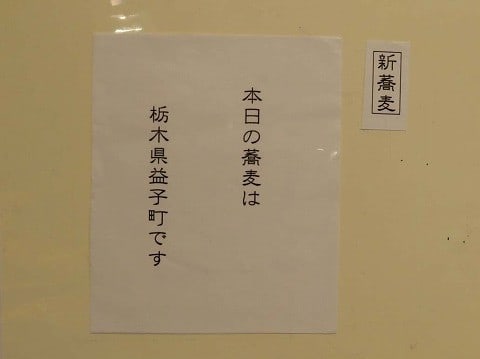 新蕎麦
本日の蕎麦は
栃木県益子町です